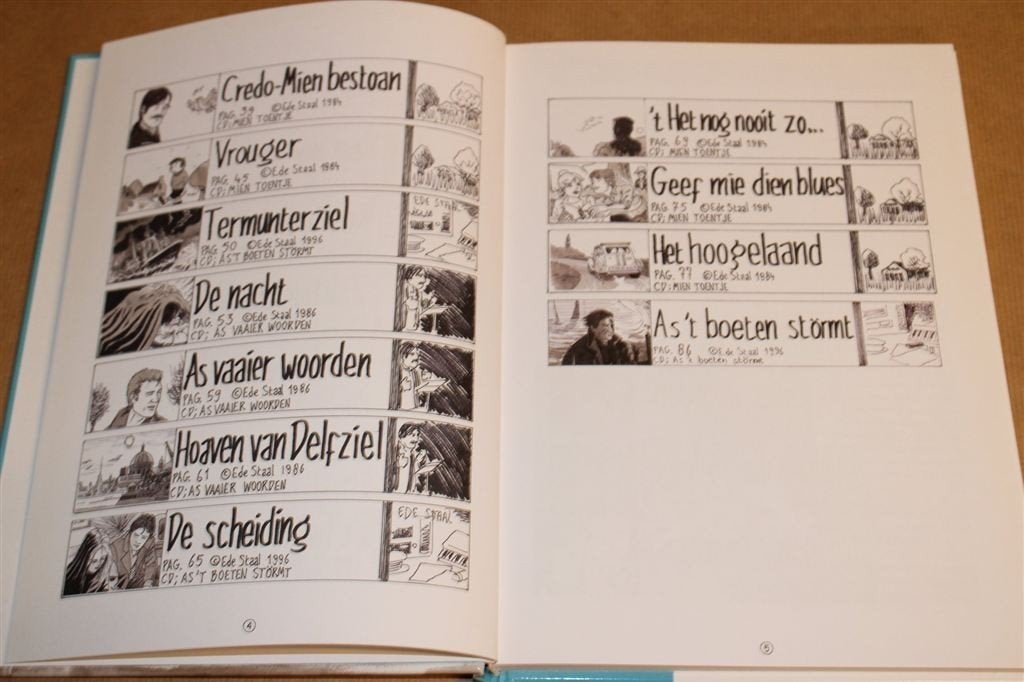 Credo-Mien bestoan
PAG. 39 ©Ede Staal 1984
CD; MIEN TOENTJE
Vrouger
PAG. 45 ©Ede Staal 1984
CD; MIEN TOENTJE
Termunterziel
PAG. 50 ©Ede Staal 1996
CD; AS'T BOETEN STÖRMT
EDE STAAL
De nacht
PAG. 53 ©Ede Staal 1986
CD; AS VAAIER WOORDEN
As vaaier woorden
PAG. 59 ©Ede Staal 1986
CD; AS VAAIER WOORDEN
Hoaven van Delfziel
PAG. 61 ©Ede Staal 1986
CD; AS VAAIER WOORDEN
De scheiding
PAG. 65 ©Ede Staal 1996
CD; AS'T BOETEN STÖRMT
EDE STAAL
4
't Het nog nooit zo...
PAG. 69 ©Ede Staal 1984
CD; MIEN TOENTJE
Geef mie dien blues
PAG. 75 ©Ede Staal 1984
CD; MIEN TOENTJE
Het hoogelaand
PAG. 77 ©Ede Staal 1984
CD; MIEN TOENTJE
As 't boeten störmt
PAG. 86 ©Ede Staal 1996
CD; As 't boeten störmt
5